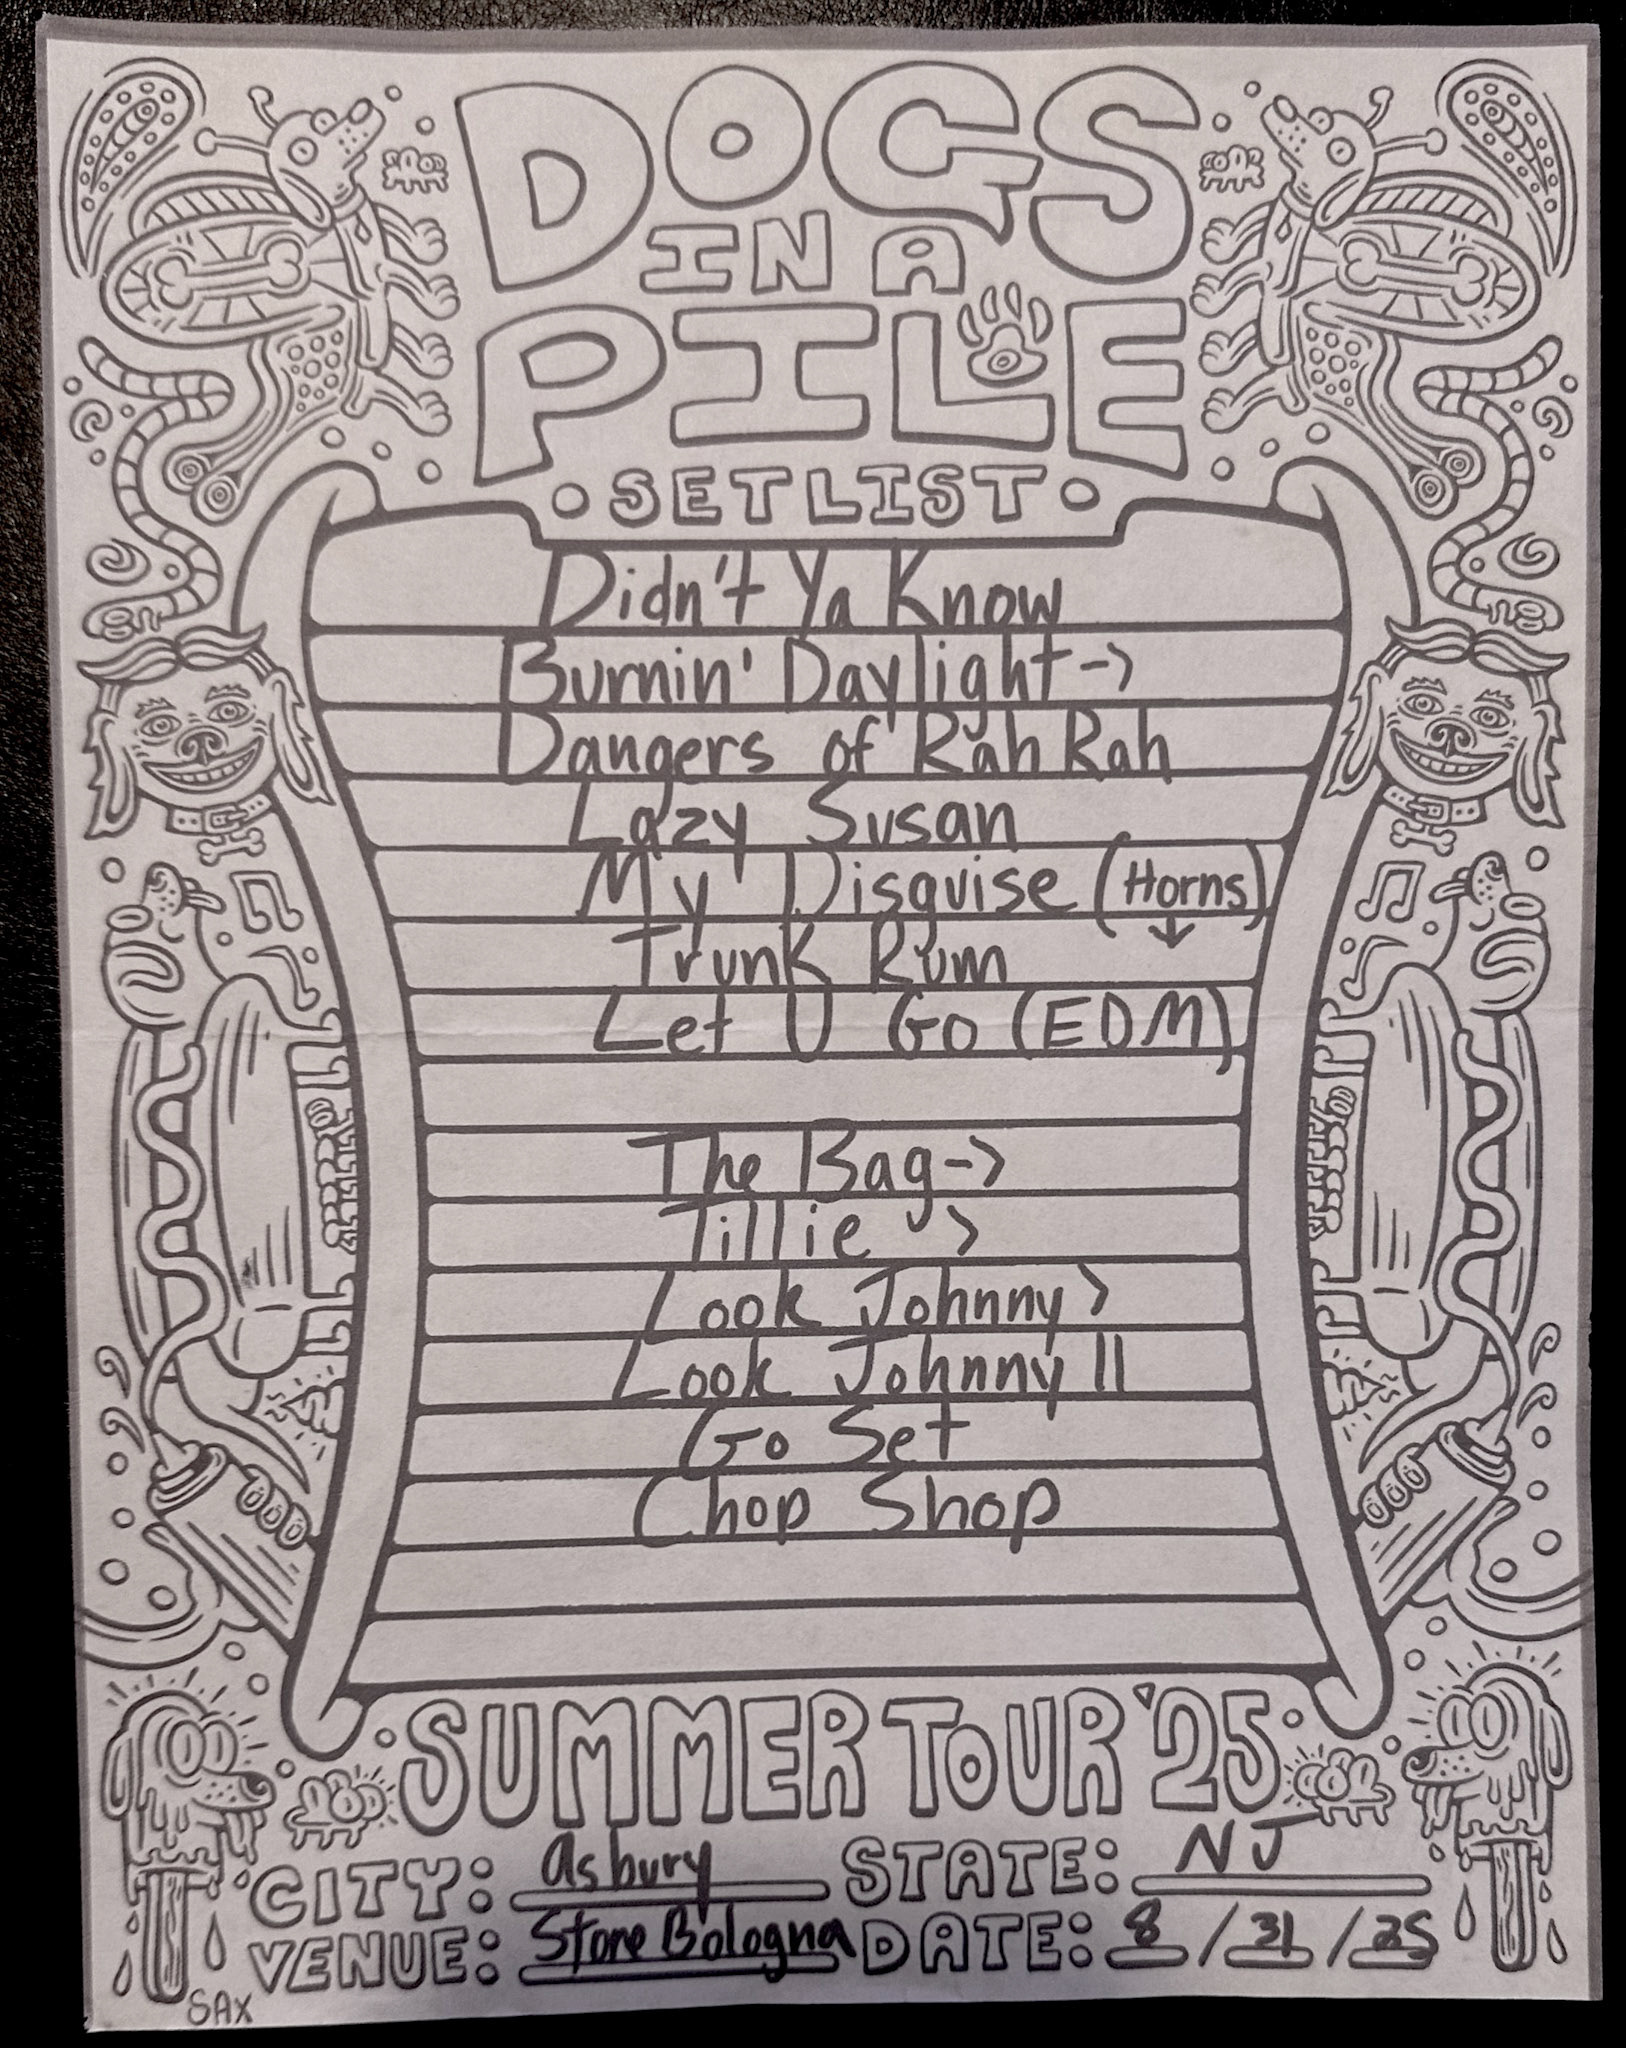 DOGS
IN A
PILE
• SETLIST •
Didn't Ya Know
Burnin' Daylight ->
Dangers of Rah Rah
Lazy Susan
My Disguise (Horns)
Trunk Rum ↓
Let U Go (EDM)
The Bag ->
Tillie >
Look Johnny >
Look Johnny II
Go Set
Chop Shop
SUMMER TOUR '25
CITY: Asbury STATE: NJ
VENUE: Stone Bologna DATE: 8/31/25
SAX